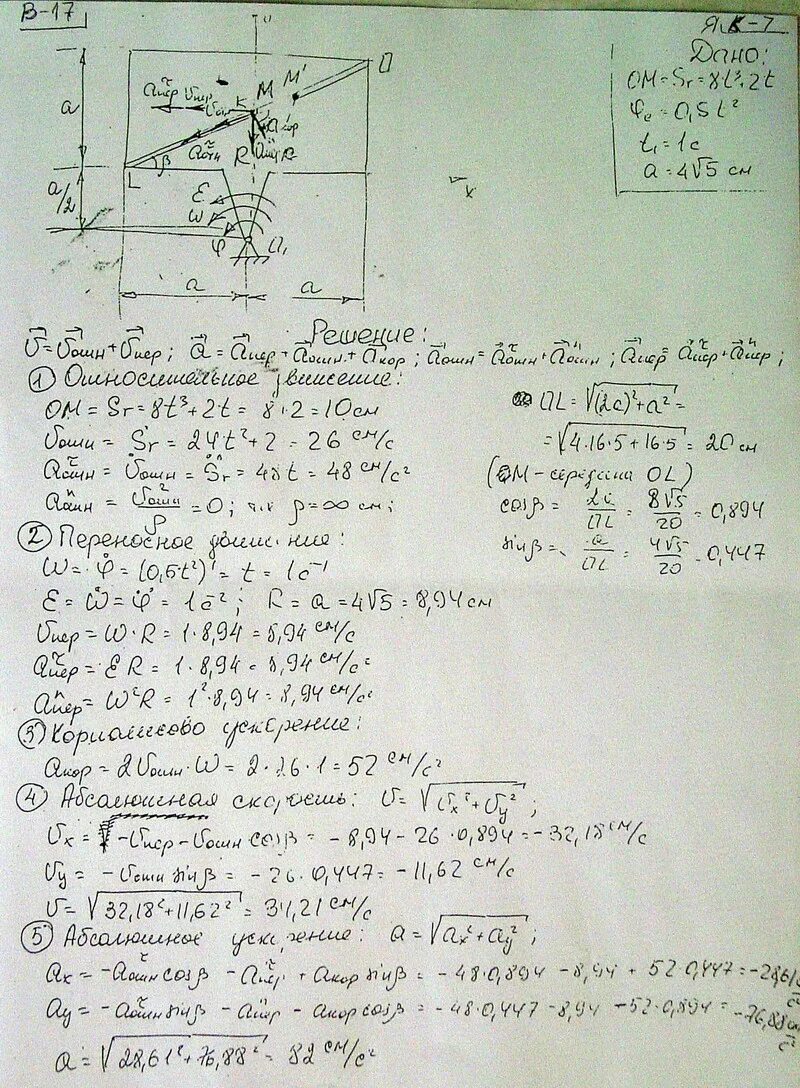 В-17
Я.К-7
Дано:
OM = Sr = 8t³+2t
φe = 0,5t²
t₁ = 1c
a = 4√5 см
a
a/2
aτпер
Vпер
Vотн
K
M
M'
O
aкор
aτотн
R
β
L
ε
ω
φ
O₁
a
a
x
Решение:
V̅ = V̅отн + V̅пер; a̅ = a̅пер + a̅отн + a̅кор; a̅отн = a̅τотн + a̅nотн; a̅пер = a̅τпер + a̅nпер;
① Относительное движение:
OM = Sr = 8t³+2t = 8+2 = 10см
Vотн = Ṡr = 24t²+2 = 26 см/с
aτотн = V̇отн = S̈r = 48t = 48 см/с²
anотн = V²отн/ρ = 0; т.к ρ = ∞ см;
OL = √((2a)²+a²) =
= √(4·16·5+16·5) = 20 см
(M - середина OL)
cosβ = 2a/OL = 8√5/20 = 0,894
sinβ = a/OL = 4√5/20 = 0,447
② Переносное движение:
ω = φ̇ = (0,5t²)' = t = 1c⁻¹
ε = ω̇ = φ̈ = 1c⁻²; R = a = 4√5 = 8,94 см
Vпер = ω·R = 1·8,94 = 8,94 см/с
aτпер = εR = 1·8,94 = 8,94 см/с²
anпер = ω²R = 1²·8,94 = 8,94 см/с²
③ Кориолисово ускорение:
aкор = 2Vотн·ω = 2·26·1 = 52 см/с²
④ Абсолютная скорость: V = √(Vx²+Vy²);
Vx = -Vпер - Vотн cosβ = -8,94 - 26·0,894 = -32,18 см/с
Vy = -Vотн sinβ = -26·0,447 = -11,62 см/с
V = √(32,18²+11,62²) = 34,21 см/с
⑤ Абсолютное ускорение: a = √(ax²+ay²);
ax = -aτотн cosβ - aτпер + aкор sinβ = -48·0,894 - 8,94 + 52·0,447 = -28,61
ay = -aτотн sinβ - anпер - aкор cosβ = -48·0,447 - 8,94 - 52·0,894 = -76,88 см/с²
a = √(28,61²+76,88²) = 82 см/с²